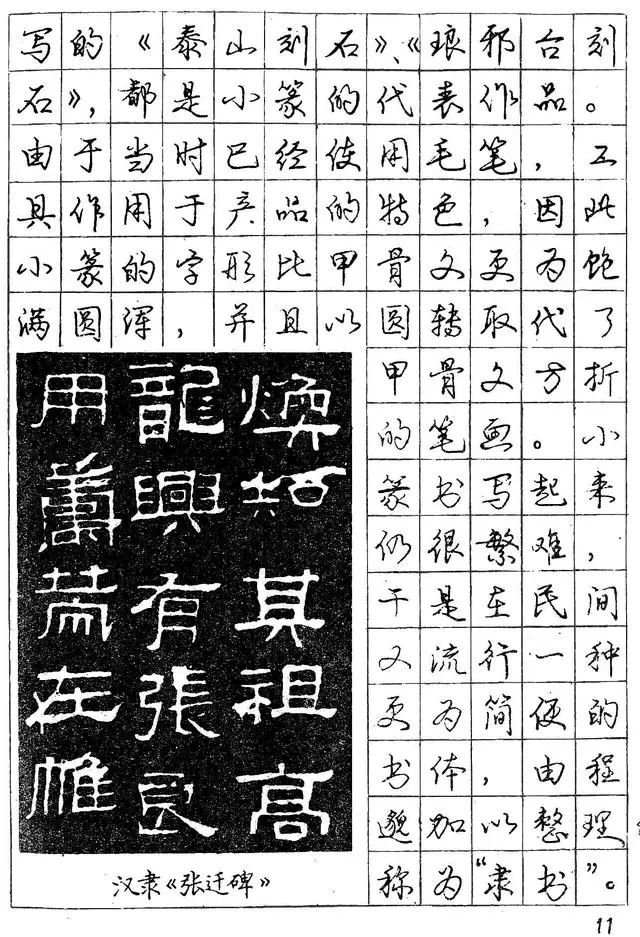 写的《泰山刻石》、《琅邪台刻
石》，都是小篆的代表作品。
由于当时已经使用毛笔，工
具作用于产品的特色，因此
小篆的字形比甲骨文更为饱
满圆浑，并且以圆转取代了
甲骨文方折
的笔画。小
篆书写起来
仍很繁难，
于是在民间
又流行一种
更为简便的
书体，由程
邈加以整理
称为“隶书”。
煥知其祖高
龍興有張良
用籌策在帷
汉隶《张迁碑》
11